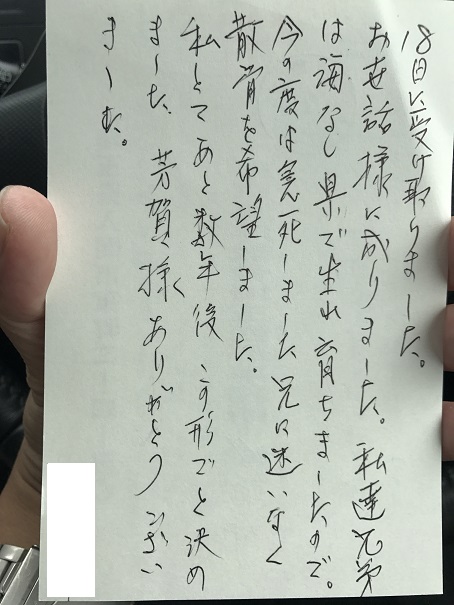 18日に受け取りました。
お世話様に成りました。私達兄弟
は海なし県で生れ育ちましたので。
今の度は急死しました兄に迷いなく
散骨を希望しました。
私とてあと数年後この形でと決め
ました。芳賀様ありがとうござい
ました。